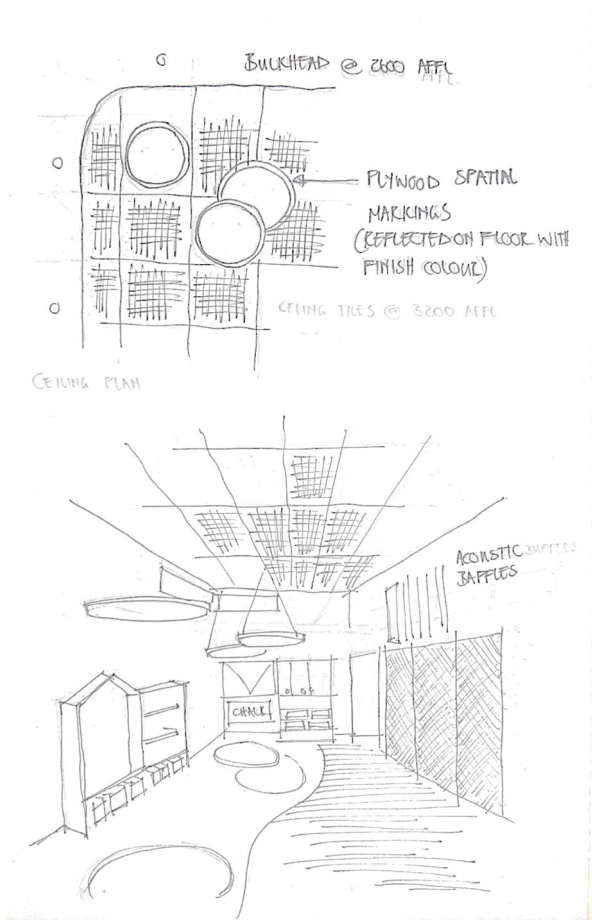 BULKHEAD @ 2600 AFFL
AFFL.
PLYWOOD SPATIAL
MARKINGS
(REFLECTED ON FLOOR WITH
FINISH COLOUR)
CEILING TILES @ 3200 AFFL
CEILING PLAN
ACOUSTIC
BAFFLES
CHALK